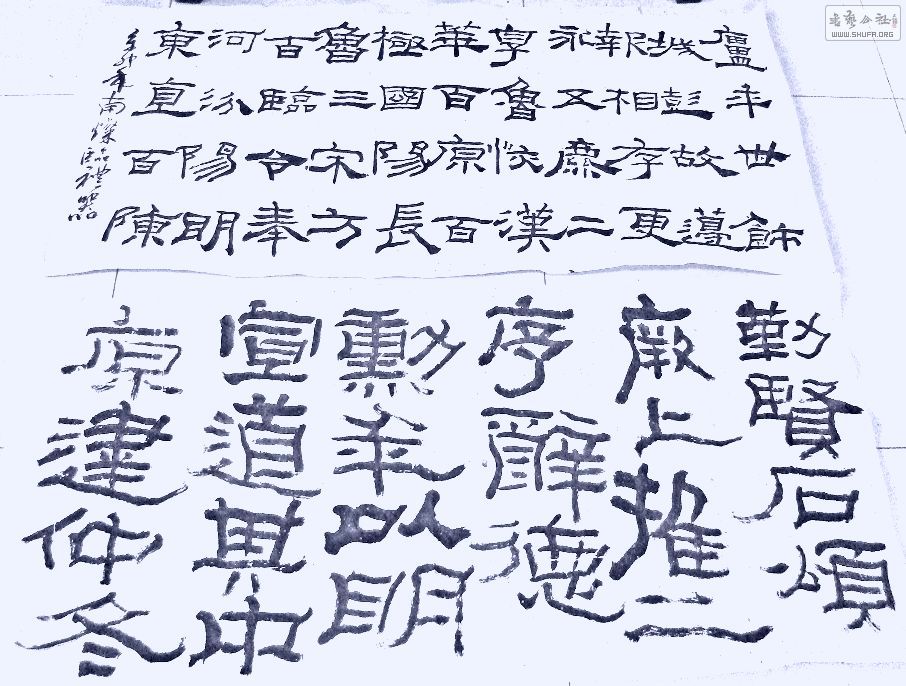 廬年世飾
城彭故薳
報相存更
永五麃二
享魯恢漢
華百京百
極國陽長
魯三宋方
百臨令奉
河汾陽明
東直百陳
辛卯年南臨禮器
勤賢石頌
厥上推二
序辭德
勳年以明
宣道其中
京建仲冬
書藝公社
WWW.SHUFA.ORG